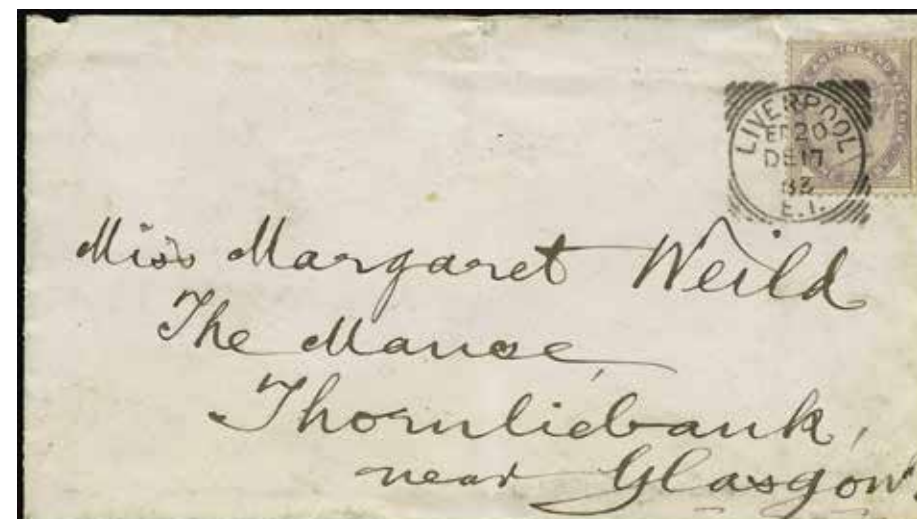 LIVERPOOL
DE 17
83
E.I.
Miss Margaret Weild
The Manse,
Thornliebank,
near Glasgow.